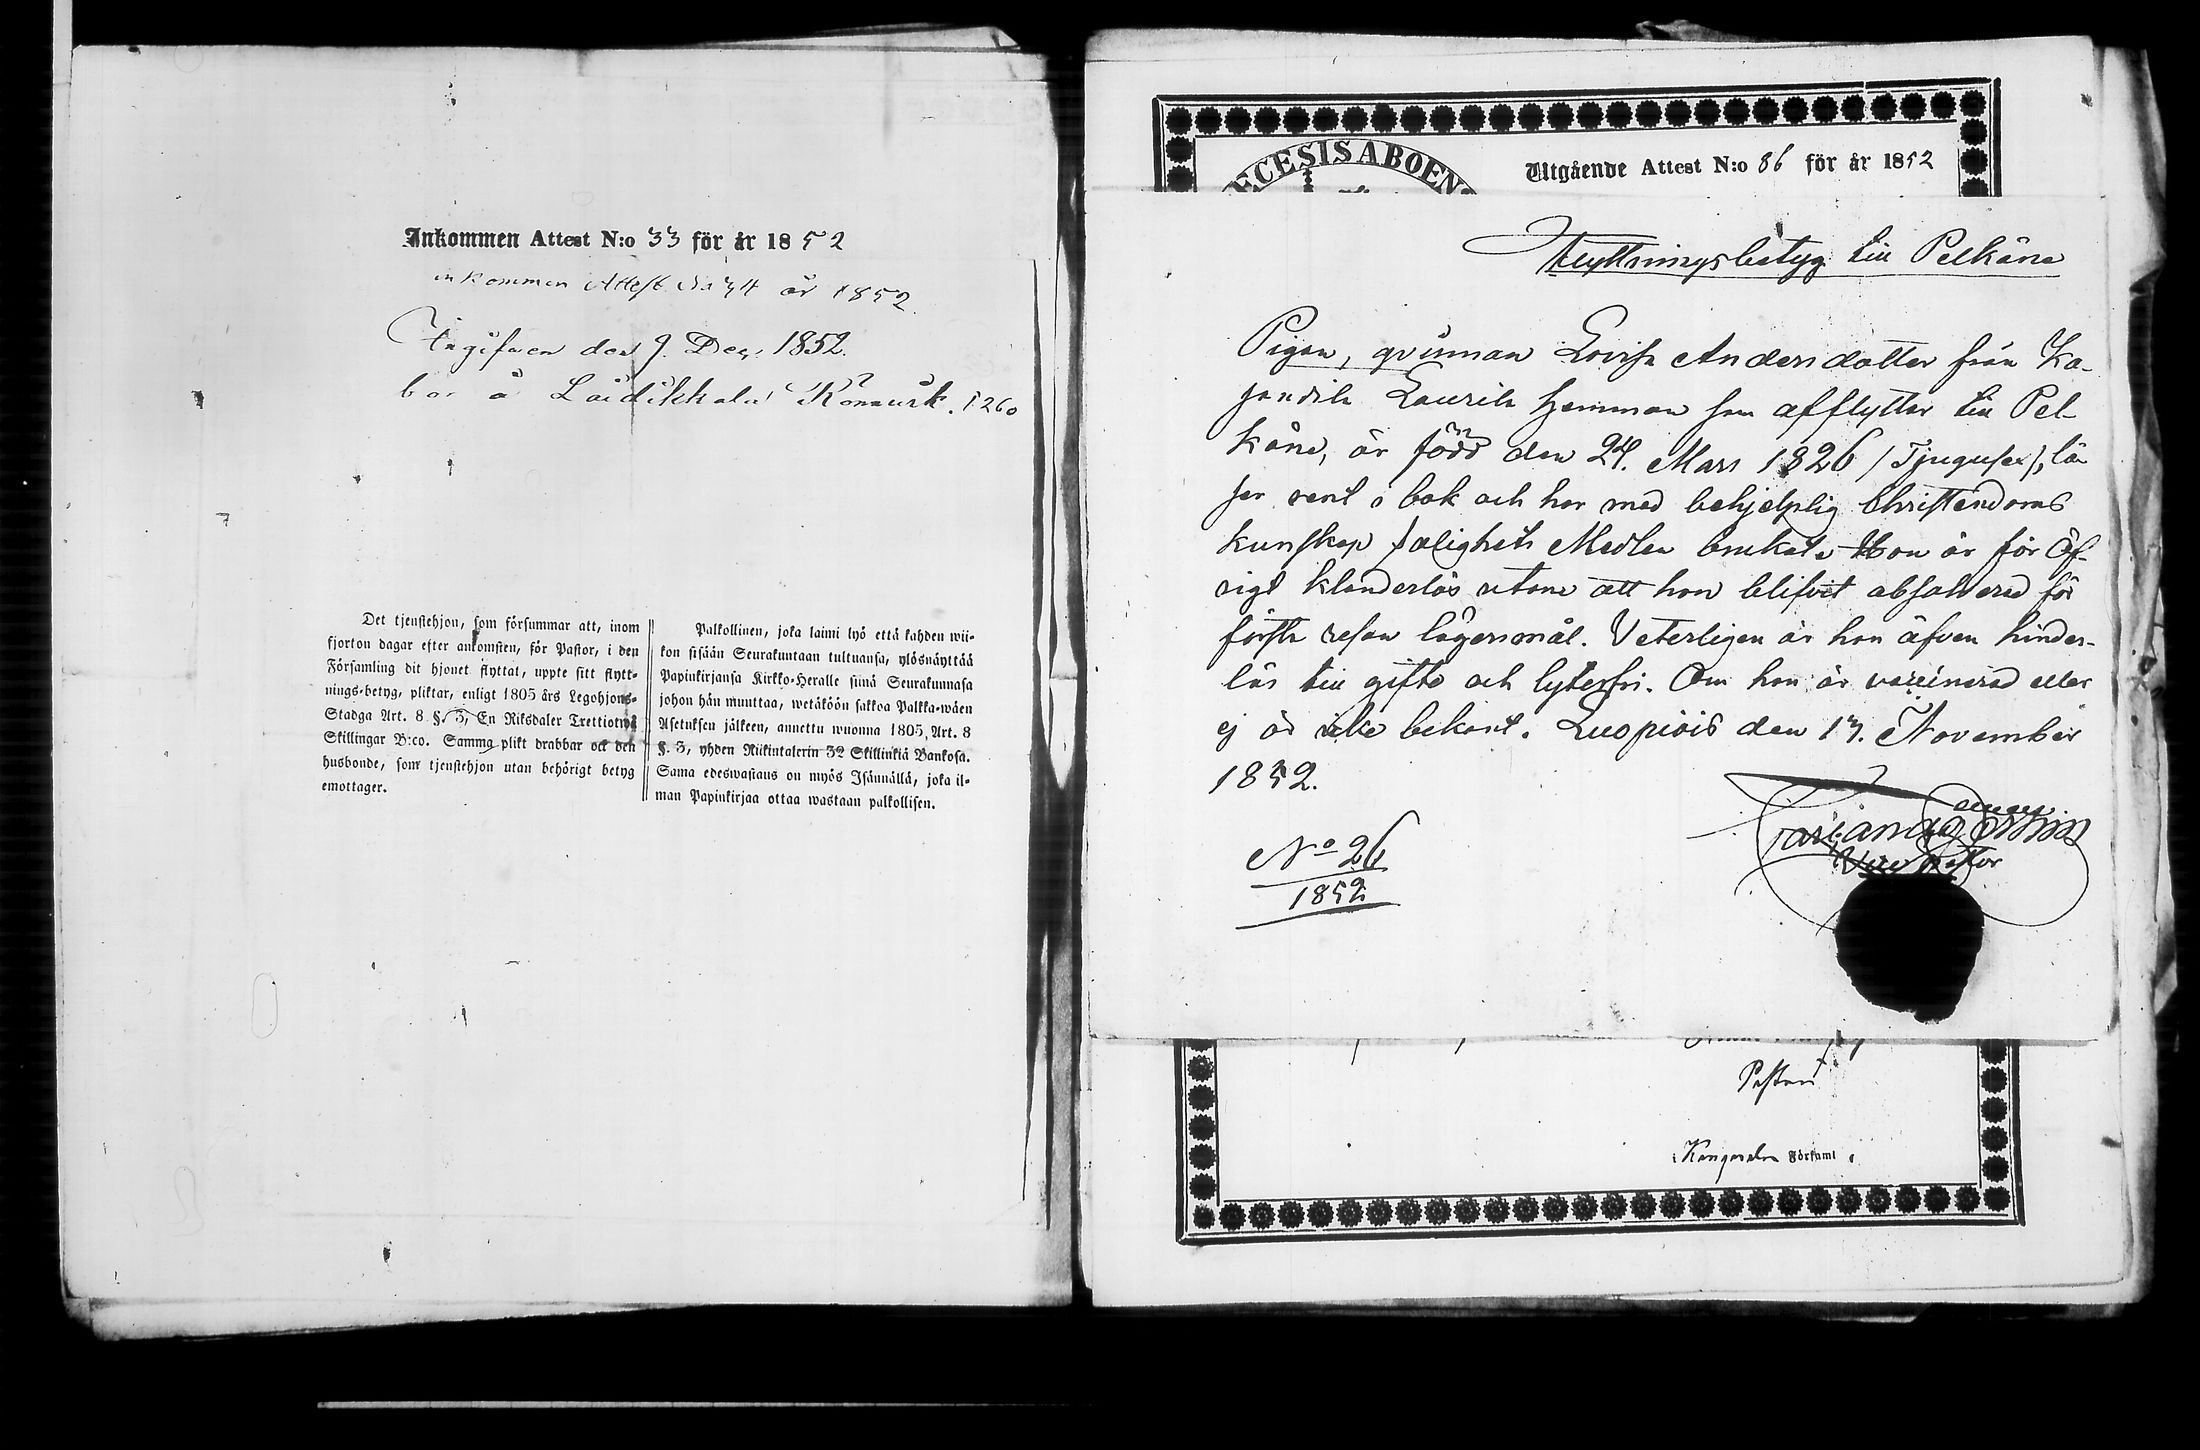 Inkommen Attest N:o 33 för år 1852
inkommen Attest No 34 år 1852.
Ingifven den 9. Dec. 1852.
bor å Laidikkala 1260
Det tjenstehjon, som försummar att, inom
fjorton dagar efter ankomsten, för Pastor, i den
Församling dit hjonet flyttat, uppte sitt flytt-
nings-betyg, pliktar, enligt 1805 års Legohjons-
Stadga Art. 8 §. 3, En Riksdaler Trettiotwå
Skillingar B:co. Samma plikt drabbar ock den
husbonde, som tjenstehjon utan behörigt betyg
emottager.
Palkollinen, joka laimi lyö että kahden wii-
kon sisään Seurakuntaan tultuansa, ylösnäyttää
Papinkirjansa Kirkko-Heralle siinä Seurakunnasa
johon hän muuttaa, wetäköön sakkoa Palkka-wäen
Asetuksen jälkeen, annettu wuonna 1805, Art. 8
§. 3, yhden Riikintalerin 32 Skillinkiä Bankosa.
Sama edeswastaus on myös Isännällä, joka il-
man Papinkirjaa ottaa wastaan palkollisen.
ECESIS ABOEN
Utgående Attest N:o 86 för år 1852
Flyttningsbetyg till Pelkäne
Pigan, qvinnan Lovisa Andersdotter från Ka-
jandila Laurila hemman som afflyttar till Pel-
käne, är född den 24. Mars 1826 /Tjugusex/, lä-
ser rent i bok och har med behjelplig Christendoms
kunskap salighets Medlen brukat. Hon är för öf-
rigt klanderlös utom att hon blifvit absolverad för
första resan lägersmål. Veterligen är hon äfven hinder-
lös till gifte och lytesfri. Om hon är vaccinerad eller
ej är icke bekant. Luopiois den 13. November
1852.
Vice Pastor
No 26
1852
Pastor
Kangasala Församl.